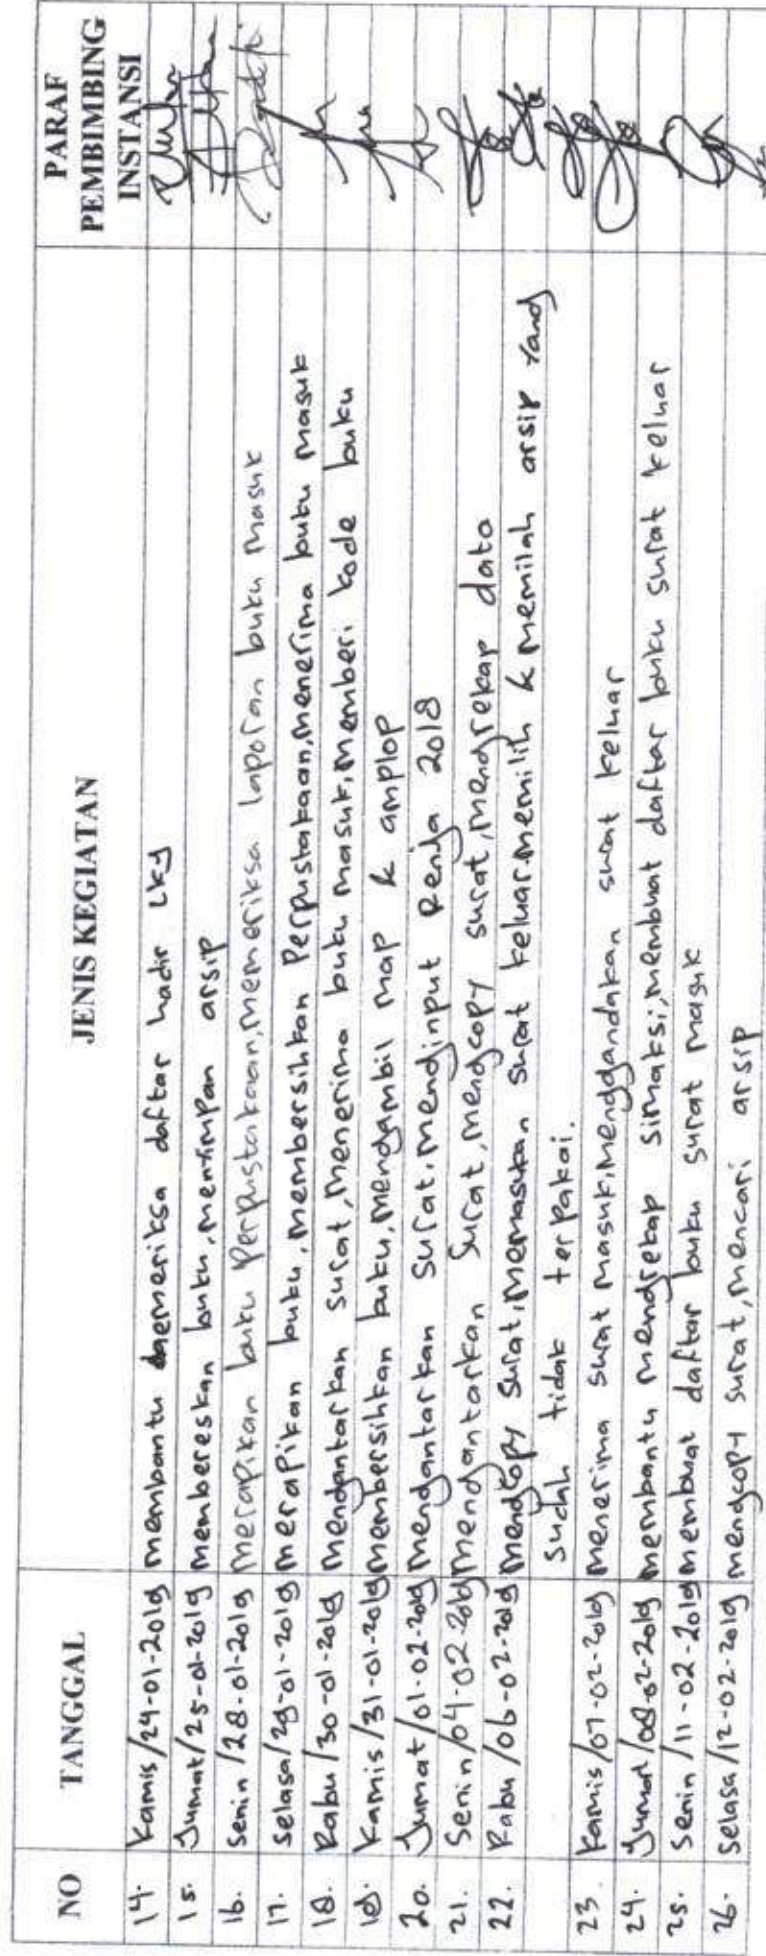 NO TANGGAL JENIS KEGIATAN PARAF
PEMBIMBING
INSTANSI
14. Kamis/24-01-2019 membantu memeriksa daftar hadir LKJ
15. Jumat/25-01-2019 membereskan buku, menyimpan arsip
16. Senin/28-01-2019 merapikan buku Perpustakaan, memeriksa laporan buku masuk
17. Selasa/29-01-2019 merapikan buku, membersihkan Perpustakaan, menerima buku masuk
18. Rabu/30-01-2019 mengantarkan surat, menerima buku masuk, memberi kode buku
19. Kamis/31-01-2019 membersihkan buku, mengambil map & amplop
20. Jumat/01-02-2019 mengantarkan surat, menginput Renja 2018
21. Senin/04-02-2019 mengantarkan surat, mengcopy surat, mengrekap data
22. Rabu/06-02-2019 mengcopy surat, memasukan surat keluar, memilih & memilah arsip yang
sudah tidak terpakai.
23. Kamis/07-02-2019 menerima surat masuk, menggandakan surat keluar
24. Jumat/08-02-2019 membantu mengrekap simaksi, membuat daftar buku surat keluar
25. Senin/11-02-2019 membuat daftar buku surat masuk
26. Selasa/12-02-2019 mengcopy surat, mencari arsip